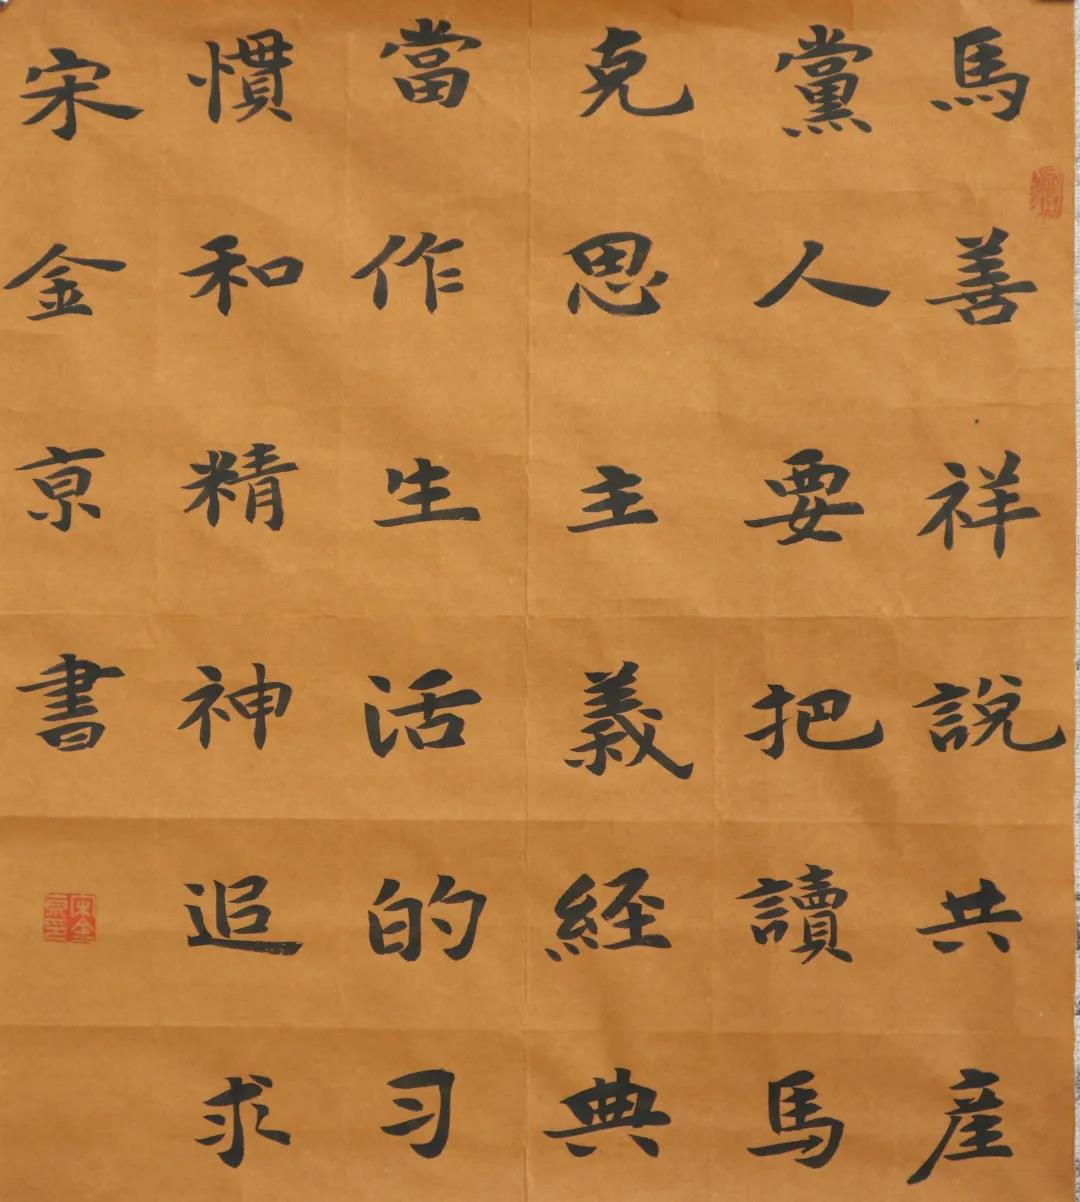 馬善祥說共産
黨人要把讀馬
克思主義経典
當作生活的习
慣和精神追求
宋金亰書
宋金京印